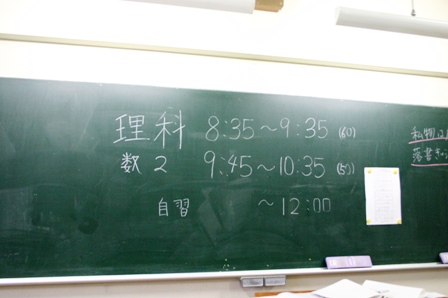 理科 8:35～9:35 (60)
数2 9:45～10:35 (50)
自習 ～12:00
私物
落書き